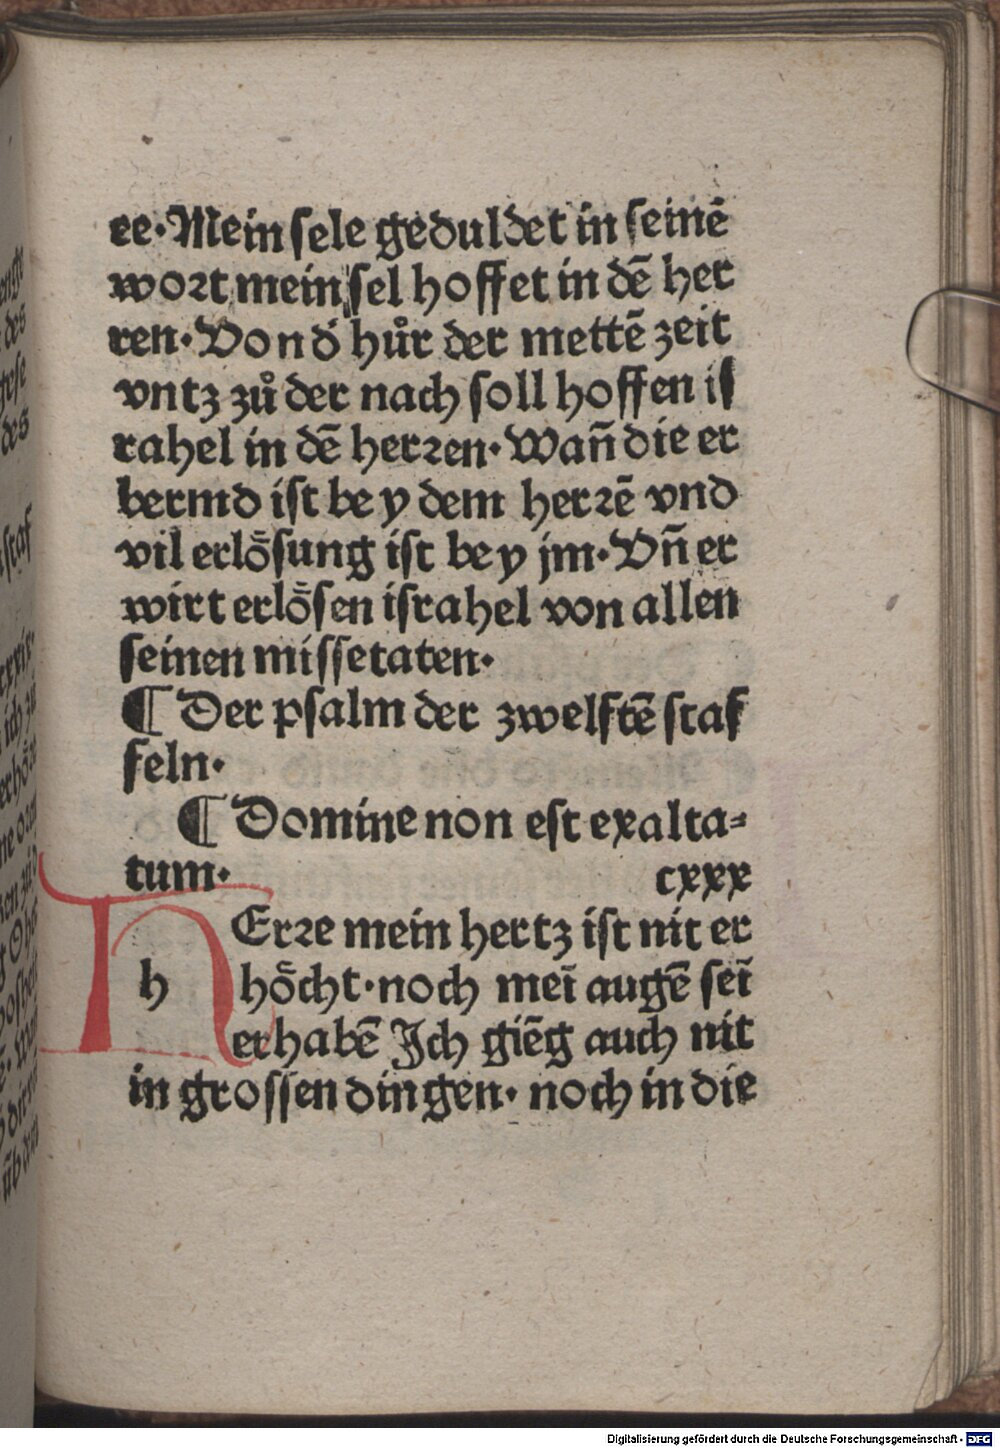 ee·Mein sele geduldet in seinē
wort mein sel hoffet in dē her
ren·Von d̕ hůr der mettē zeit
vntz zů der nach soll hoffen is
rahel in dē herren·Wan̄ die er
bermd ist bey dem herrē vnd
vil erlo̊sung ist bey jm·Vn̄ er
wirt erlo̊sen israhel von allen
seinen missetaten·
¶ Der psalm der zwelftē staf
feln·
¶ Domine non est exalta=
tum· cxxx
h Erre mein hertz ist nit er
ho̊cht·noch meī augē seī
erhabē Jch giēg auch nit
in grossen dingen· noch in die
Digitalisierung gefördert durch die Deutsche Forschungsgemeinschaft - DFG